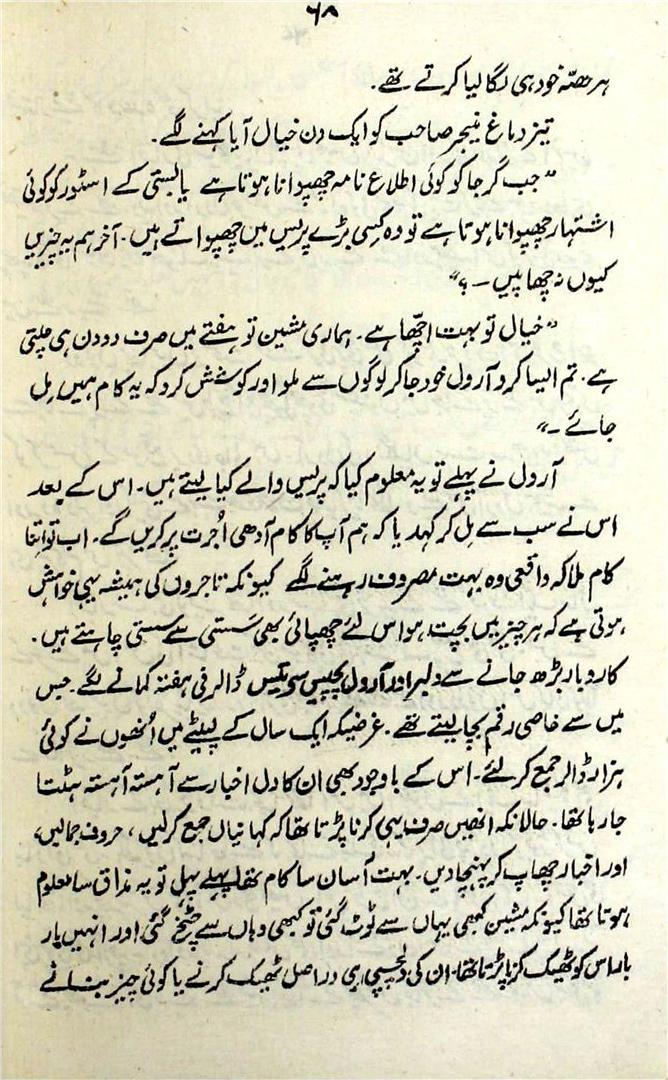 ۶۸
ہر حصّہ خود ہی لگا لیا کرتے تھے۔
تیز دماغ نیجر صاحب کو ایک دن خیال آیا کہنے لگے۔
”جب گرجا کو کوئی اطلاع نامہ چھپوانا ہوتا ہے یا بستی کے اسٹور کو کوئی
اشتہار چھپوانا ہوتا ہے تو وہ کسی بڑے پریس میں چھپواتے ہیں۔ آخر ہم یہ چیزیں
کیوں نہ چھاپیں ۔ ؟“
”خیال تو بہت اچّھا ہے۔ ہماری مشین تو ہفتے میں صرف دو دن ہی چلتی
ہے۔ تم ایسا کرو آرول خود جا کر لوگوں سے ملو اور کوشش کرو کہ یہ کام ہمیں مل
جائے ۔“
آرول نے پہلے تو یہ معلوم کیا کہ پریس والے کیا لیتے ہیں۔ اس کے بعد
اس نے سب سے مل کر کہدیا کہ ہم آپ کا کام آدھی اُجرت پر کریں گے۔ اب تو اتنا
کام ملا کہ واقعی وہ بہت مصروف رہنے لگے کیونکہ تاجروں کی ہمیشہ یہی خواہش
ہوتی ہے کہ ہر چیز میں بچت ہو اس لئے چھپائی بھی سَستی سے سستی چاہتے ہیں۔
کاروبار بڑھ جانے سے ولبر اور آرول پچیس سے تیس ڈالر فی ہفتہ کمانے لگے۔ جس
میں سے خاصی رقم بچا لیتے تھے۔ غرضیکہ ایک سال کے لپیٹے میں اُنھوں نے کوئی
ہزار ڈالر جمع کر لئے۔ اس کے باوجود بھی ان کا دل اخبار سے آہستہ آہستہ ہٹتا
جا رہا تھا۔ حالانکہ انھیں صرف یہی کرنا پڑتا تھا کہ کہانیاں جمع کر لیں، حروف جمالیں،
اور اخبار چھاپ کر پہنچا دیں۔ بہت آسان سا کام تھا۔ پہلے پہل تو یہ مذاق سا معلوم
ہوتا تھا کیونکہ مشین کبھی یہاں سے ٹوٹ گئی تو کبھی وہاں سے چٹخ گئی اور انہیں بار
بار اس کو ٹھیک کرنا پڑتا تھا۔ ان کی دلچسپی ہی دراصل ٹھیک کرنے یا کوئی چیز بنانے